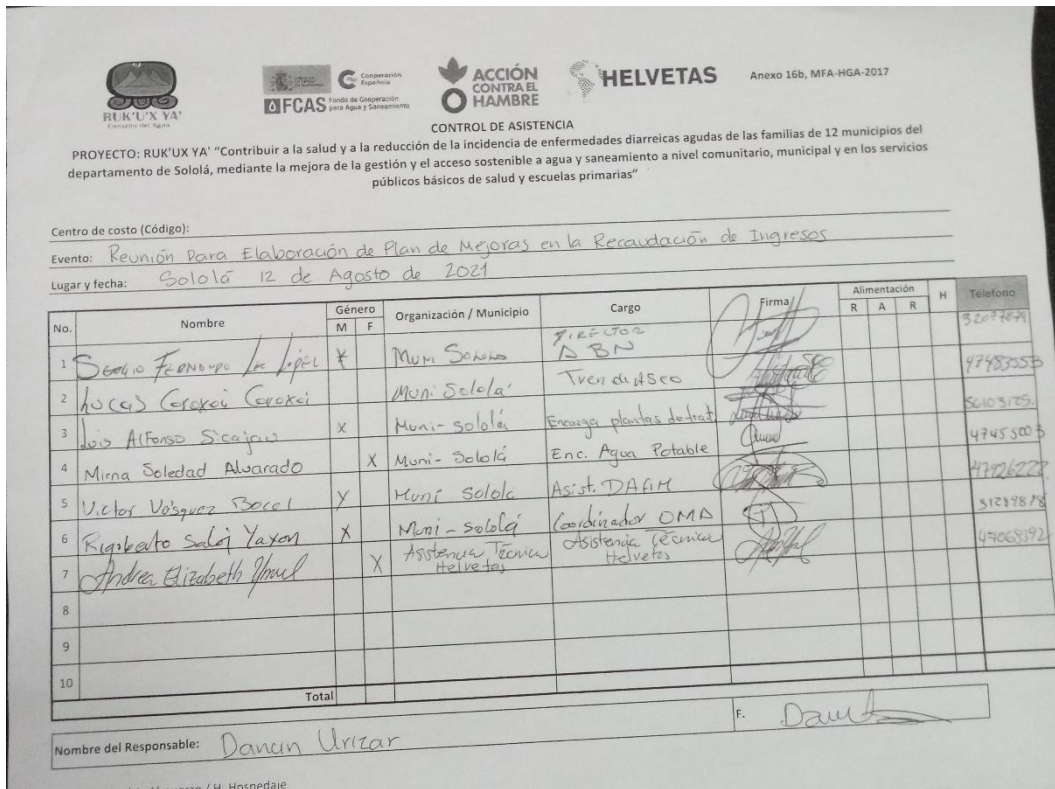 RUK'U'X YA'
Corazón del Agua
Cooperación
Española
FCAS Fondo de Cooperación
para Agua y Saneamiento
ACCIÓN
CONTRA EL
HAMBRE
HELVETAS
Anexo 16b, MFA-HGA-2017
CONTROL DE ASISTENCIA
PROYECTO: RUK'UX YA' "Contribuir a la salud y a la reducción de la incidencia de enfermedades diarreicas agudas de las familias de 12 municipios del
departamento de Sololá, mediante la mejora de la gestión y el acceso sostenible a agua y saneamiento a nivel comunitario, municipal y en los servicios
públicos básicos de salud y escuelas primarias"
Centro de costo (Código):
Evento: Reunión Para Elaboración de Plan de Mejoras en la Recaudación de Ingresos
Lugar y fecha: Sololá 12 de Agosto de 2021
No. Nombre Género M F Organización / Municipio Cargo Firma Alimentación R A R H Telefono
1 López X Muni Sololá DIRECTOR
2 Lucas Muni Sololá Tren de Aseo
3 Luis Alfonso Sicajau x Muni-Sololá plantas de trat
4 Mirna Soledad Alvarado X Muni-Sololá Enc. Agua Potable
5 Victor Vásquez Bocel X Muni Sololá Asist. DAFIM
6 Rigoberto Saloj Yaxon X Muni-Sololá Coordinador OMA
7 Andrea Elizabeth X Asistencia Técnica Helvetas Asistencia Técnica Helvetas 47068392
8
9
10
Total
Nombre del Responsable: Urizar F.
/ H. Hospedaje